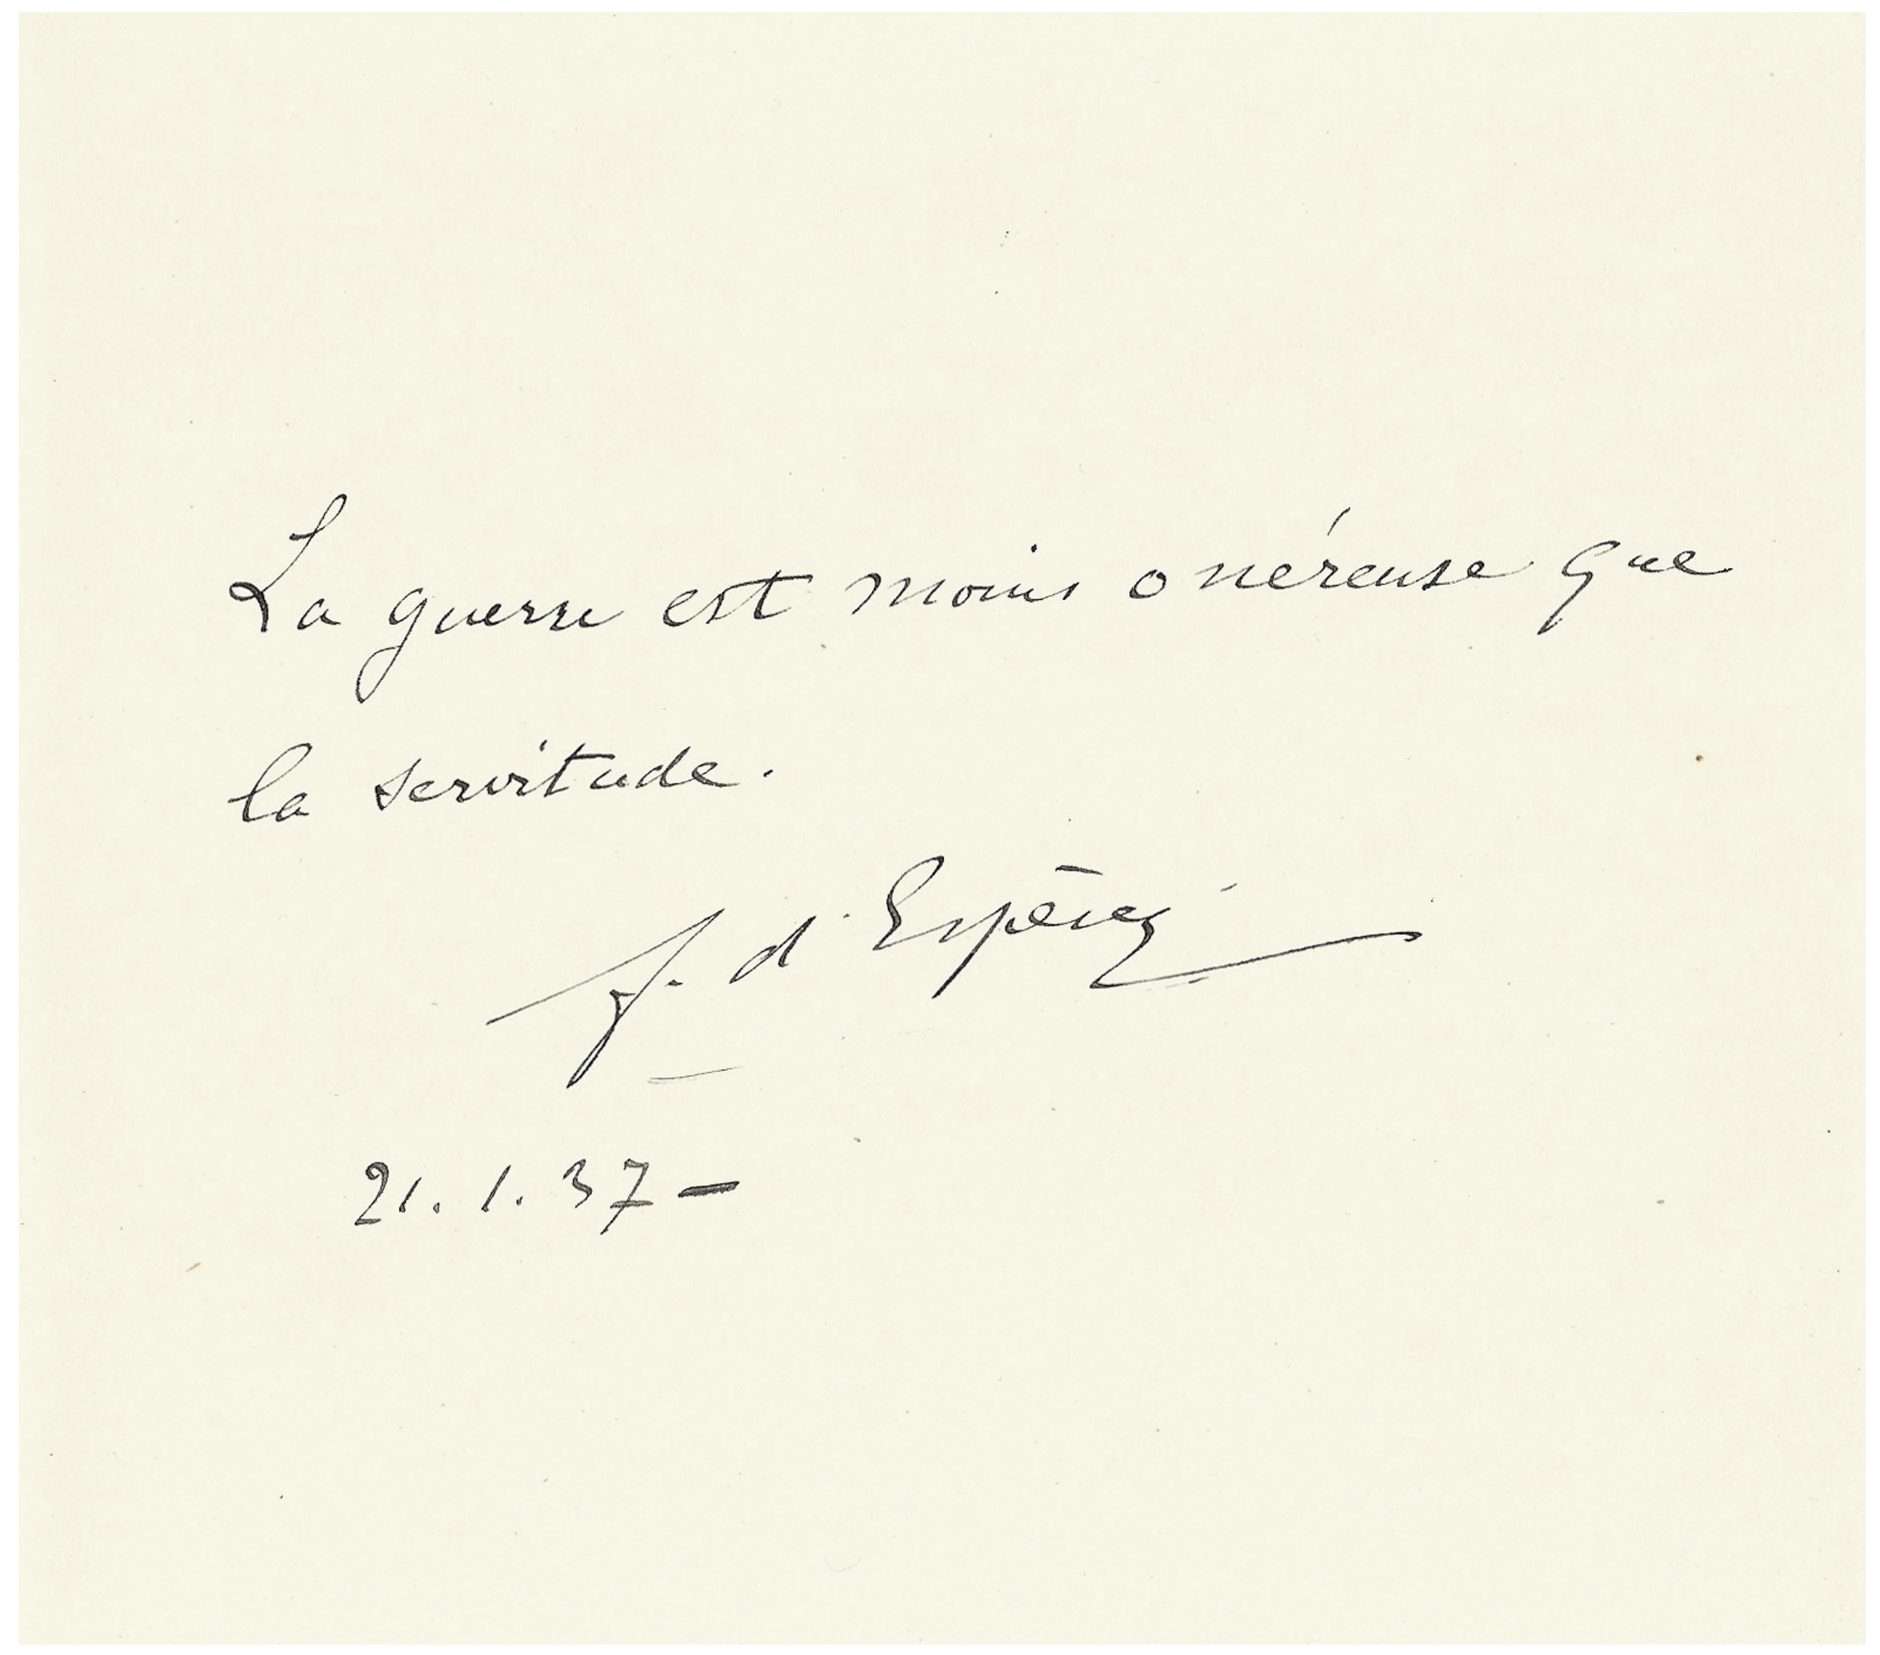 La guerre est moins onéreuse que
la servitude.
f. d'Espérey
21.1.37-